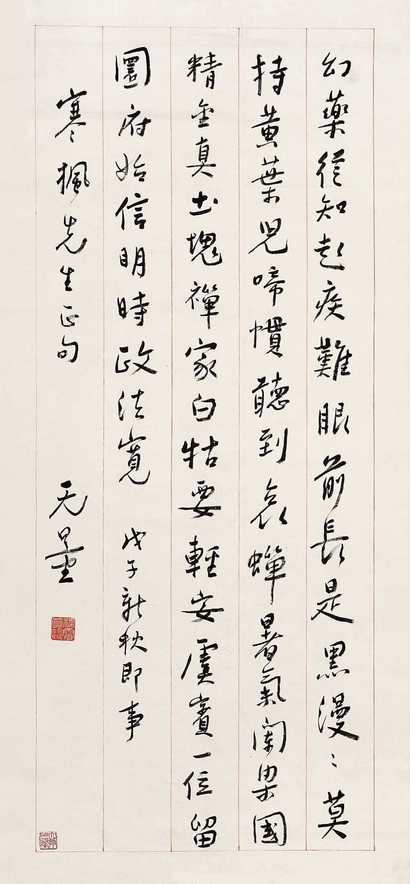 幻藥從知起疾難眼前長是黑漫〻莫
持黃葉兒啼慣聽到哀蟬暑氣闌梁國
精金真土塊禪家白牯要輕安虞賓一位留
圜府始信明時政法寬 戊子新秋即事
寒楓先生正句
无量